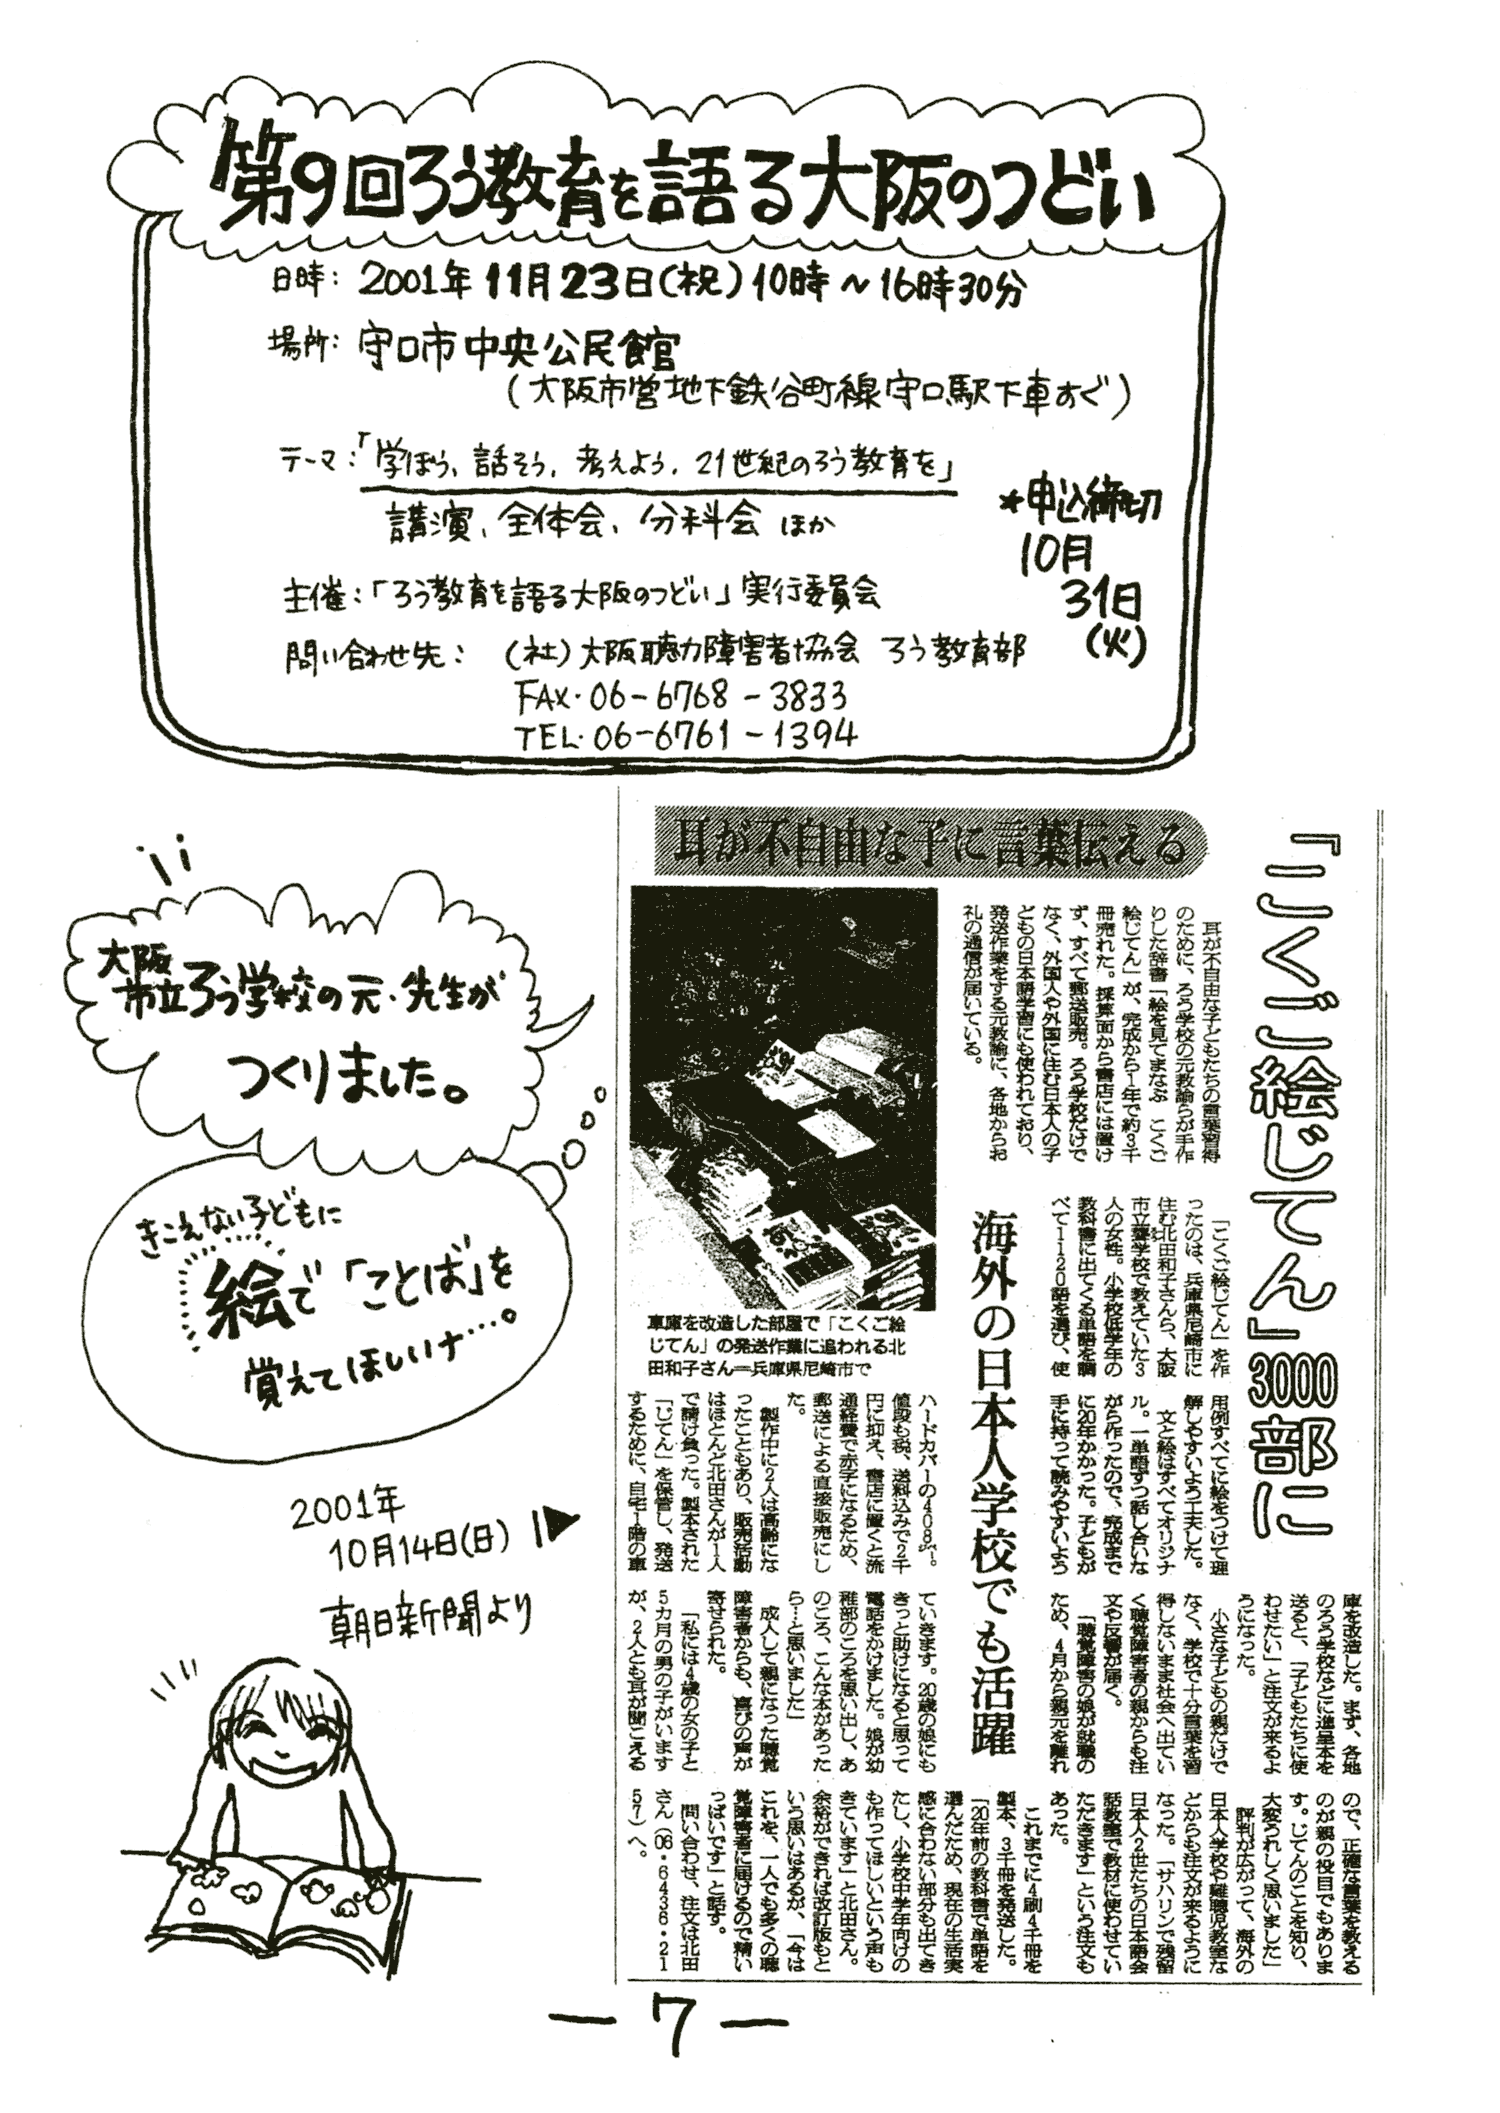 第9回ろう教育を語る大阪のつどい
日時: 2001年11月23日(祝)10時～16時30分
場所: 守口市中央公民館
(大阪市営地下鉄谷町線守口駅下車すぐ)
テーマ:「学ぼう、話そう、考えよう、21世紀のろう教育を」
講演、全体会、分科会 ほか
＊申込締切
10月
31日
(火)
主催:「ろう教育を語る大阪のつどい」実行委員会
問い合わせ先: (社)大阪聴力障害者協会 ろう教育部
FAX・06-6768-3833
TEL・06-6761-1394
大阪
市立ろう学校の元・先生が
つくりました。
きこえない子どもに
絵で「ことば」を
覚えてほしいナ…。
2001年
10月14日(日)
朝日新聞より
耳が不自由な子に言葉伝える
『こくご絵じてん』3000部に
海外の日本人学校でも活躍
耳が不自由な子どもたちの言葉習得
のために、ろう学校の元教諭らが手作
りした辞書「絵を見てまなぶ こくご
絵じてん」が、完成から1年で約3千
冊売れた。採算面から書店には置け
ず、すべて郵送販売。ろう学校だけで
なく、外国人や外国に住む日本人の子
どもの日本語学習にも使われており、
発送作業をする元教諭に、各地からお
礼の通信が届いている。
車庫を改造した部屋で「こくご絵
じてん」の発送作業に追われる北
田和子さん＝兵庫県尼崎市で
「こくご絵じてん」を作
ったのは、兵庫県尼崎市に
住む北田和子さんら、大阪
市立聾学校で教えていた3
人の女性。小学校低学年の
教科書に出てくる単語を調
べて1120語を選び、使
用例すべてに絵をつけて理
解しやすいよう工夫した。
文と絵はすべてオリジナ
ル。一単語ずつ話し合いな
がら作ったので、完成まで
に20年かかった。子どもが
手に持って読みやすいよう
ハードカバーの408㌻。
値段も税、送料込みで2千
円に抑え、書店に置くと流
通経費で赤字になるため、
郵送による直接販売にし
た。
製作中に2人は高齢にな
ったこともあり、販売活動
はほとんど北田さんが1人
で請け負った。製本された
「じてん」を保管し、発送
するために、自宅1階の車
庫を改造した。まず、各地
のろう学校などに進呈本を
送ると、「子どもたちに使
わせたい」と注文が来るよ
うになった。
小さな子どもの親だけで
なく、学校で十分言葉を習
得しないまま社会へ出てい
く聴覚障害者の親からも注
文や反響が届く。
「聴覚障害の娘が就職の
ため、4月から親元を離れ
ていきます。20歳の娘にも
きっと助けになると思って
電話をかけました。娘が幼
稚部のころを思い出し、あ
のころ、こんな本があった
ら…と思いました」
成人して親になった聴覚
障害者からも、喜びの声が
寄せられた。
「私には4歳の女の子と
5カ月の男の子がいます
が、2人とも耳が聞こえる
ので、正確な言葉を教える
のが親の役目でもありま
す。じてんのことを知り、
大変うれしく思いました」
評判が広がって、海外の
日本人学校や難聴児教室な
どからも注文が来るように
なった。「サハリンで残留
日本人2世たちの日本語会
話教室で教材に使わせてい
ただきます」という注文も
あった。
これまでに4刷4千冊を
製本、3千冊を発送した。
「20年前の教科書で単語を
選んだため、現在の生活実
感に合わない部分も出てき
たし、小学校中学年向けの
も作ってほしいという声も
きています」と北田さん。
余裕ができれば改訂版もと
いう思いはあるが、「今は
これを、一人でも多くの聴
覚障害者に届けるので精い
っぱいです」と話す。
問い合わせ、注文は北田
さん(06・6436・21
57)へ。
－7－